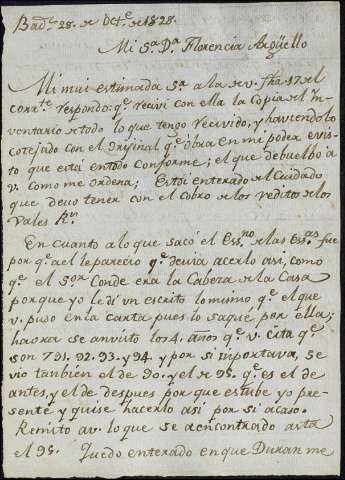 Badz 28. de Octe. de 1828.
Mi Sa. Da. Florencia Argüello
Mi mui estimada Sa. a la de v. fha 17 del
corrte. respondo: qe. recivi con ella la Copia del In-
ventario de todo lo que tengo recivido, y haviendolo
cotejado con el original qe. obra en mi poder e vis-
to que está en todo conforme; el que debuelbo a
v. como me ordena; Estoi enterado del Cuidado
que devo tener con el Cobro de los reditos de los
Vales Rs.
En cuanto a lo que sacó el Essno. de las Essas. fue
por qe. a el le parecio qe. devia acerlo asi, como
qe. el Sor. Conde era la Cabeza de la Casa
porque yo le di un escrito lo mismo qe. el que
v. puso en la carta pues lo saqué por ella;
haora se an visto los 4. años qe. v. cita qe.
son 791. 92. 93. y 94 y por si importava, se
vio tanbien el de 90. y el de 95. qe. es el de
antes, y el de despues por que estube yo pre-
sente y quise hacerlo asi por si acaso.
Remito a v. lo que se a encontrado asta
el 95. Quedo enterado en que Duran me